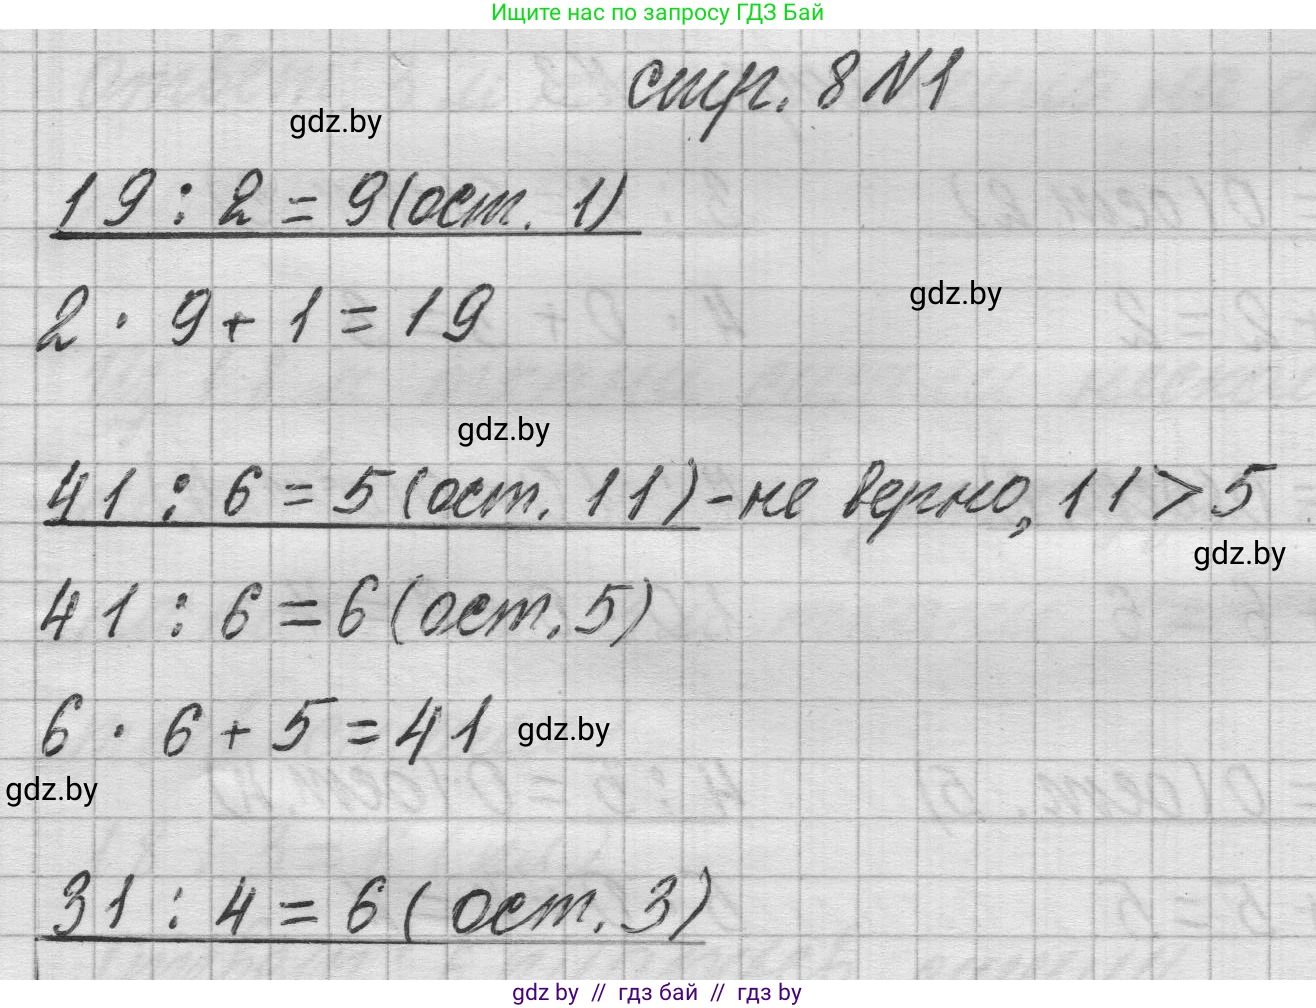 Ищите нас по запросу ГДЗ Бай
стр. 8 №1
gdz.by
19 : 2 = 9 (ост. 1)
gdz.by
2 · 9 + 1 = 19
gdz.by
41 : 6 = 5 (ост. 11) - не верно, 11 > 5
gdz.by
41 : 6 = 6 (ост. 5)
6 · 6 + 5 = 41
gdz.by
gdz.by
31 : 4 = 6 (ост. 3)
gdz by // гдз бай // гдз by